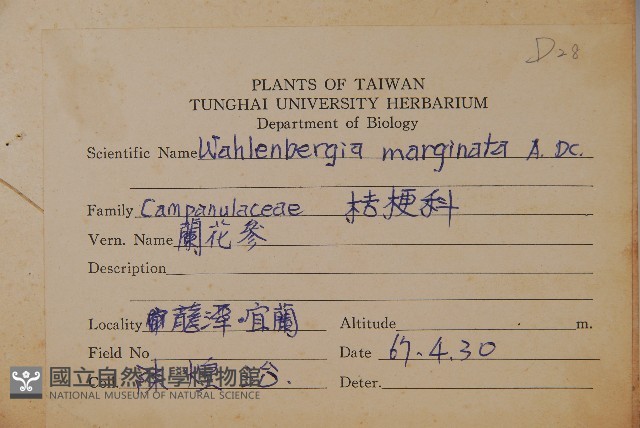 D28
PLANTS OF TAIWAN
TUNGHAI UNIVERSITY HERBARIUM
Department of Biology
Scientific Name Wahlenbergia marginata A. DC.
Family Campanulaceae 桔梗科
Vern. Name 蘭花參
Description
Locality 潭·宜蘭 Altitude m.
Field No Date 67.4.30
Coll. 陳 Deter.
國立自然科學博物館
NATIONAL MUSEUM OF NATURAL SCIENCE